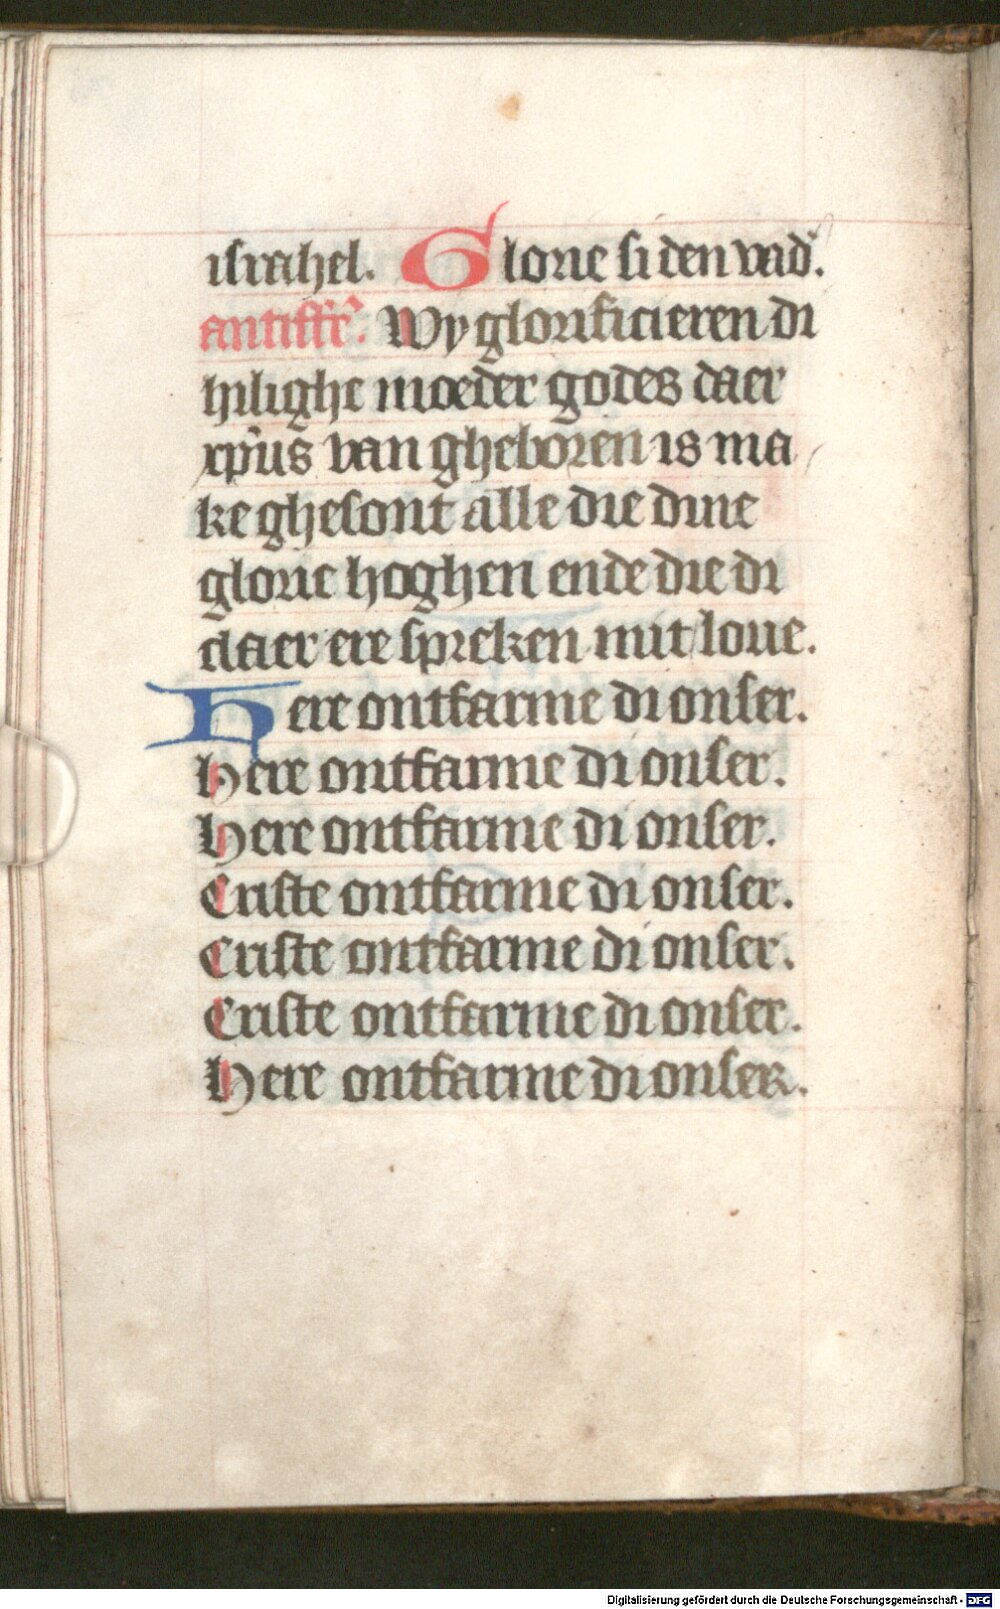 israhel. Glorie si den vad'.
antiffe'. Wy glorificieren di
hilighe moeder godes daer
xp̄us van gheboren is ma/
ke ghesont alle die dine
glorie hoghen ende die di
daer ere spreken mit loue.
Here ontfarme di onser.
Here ontfarme di onser.
Here ontfarme di onser.
Criste ontfarme di onser.
Criste ontfarme di onser.
Criste ontfarme di onser.
Here ontfarme di onser.
Digitalisierung gefördert durch die Deutsche Forschungsgemeinschaft - DFG